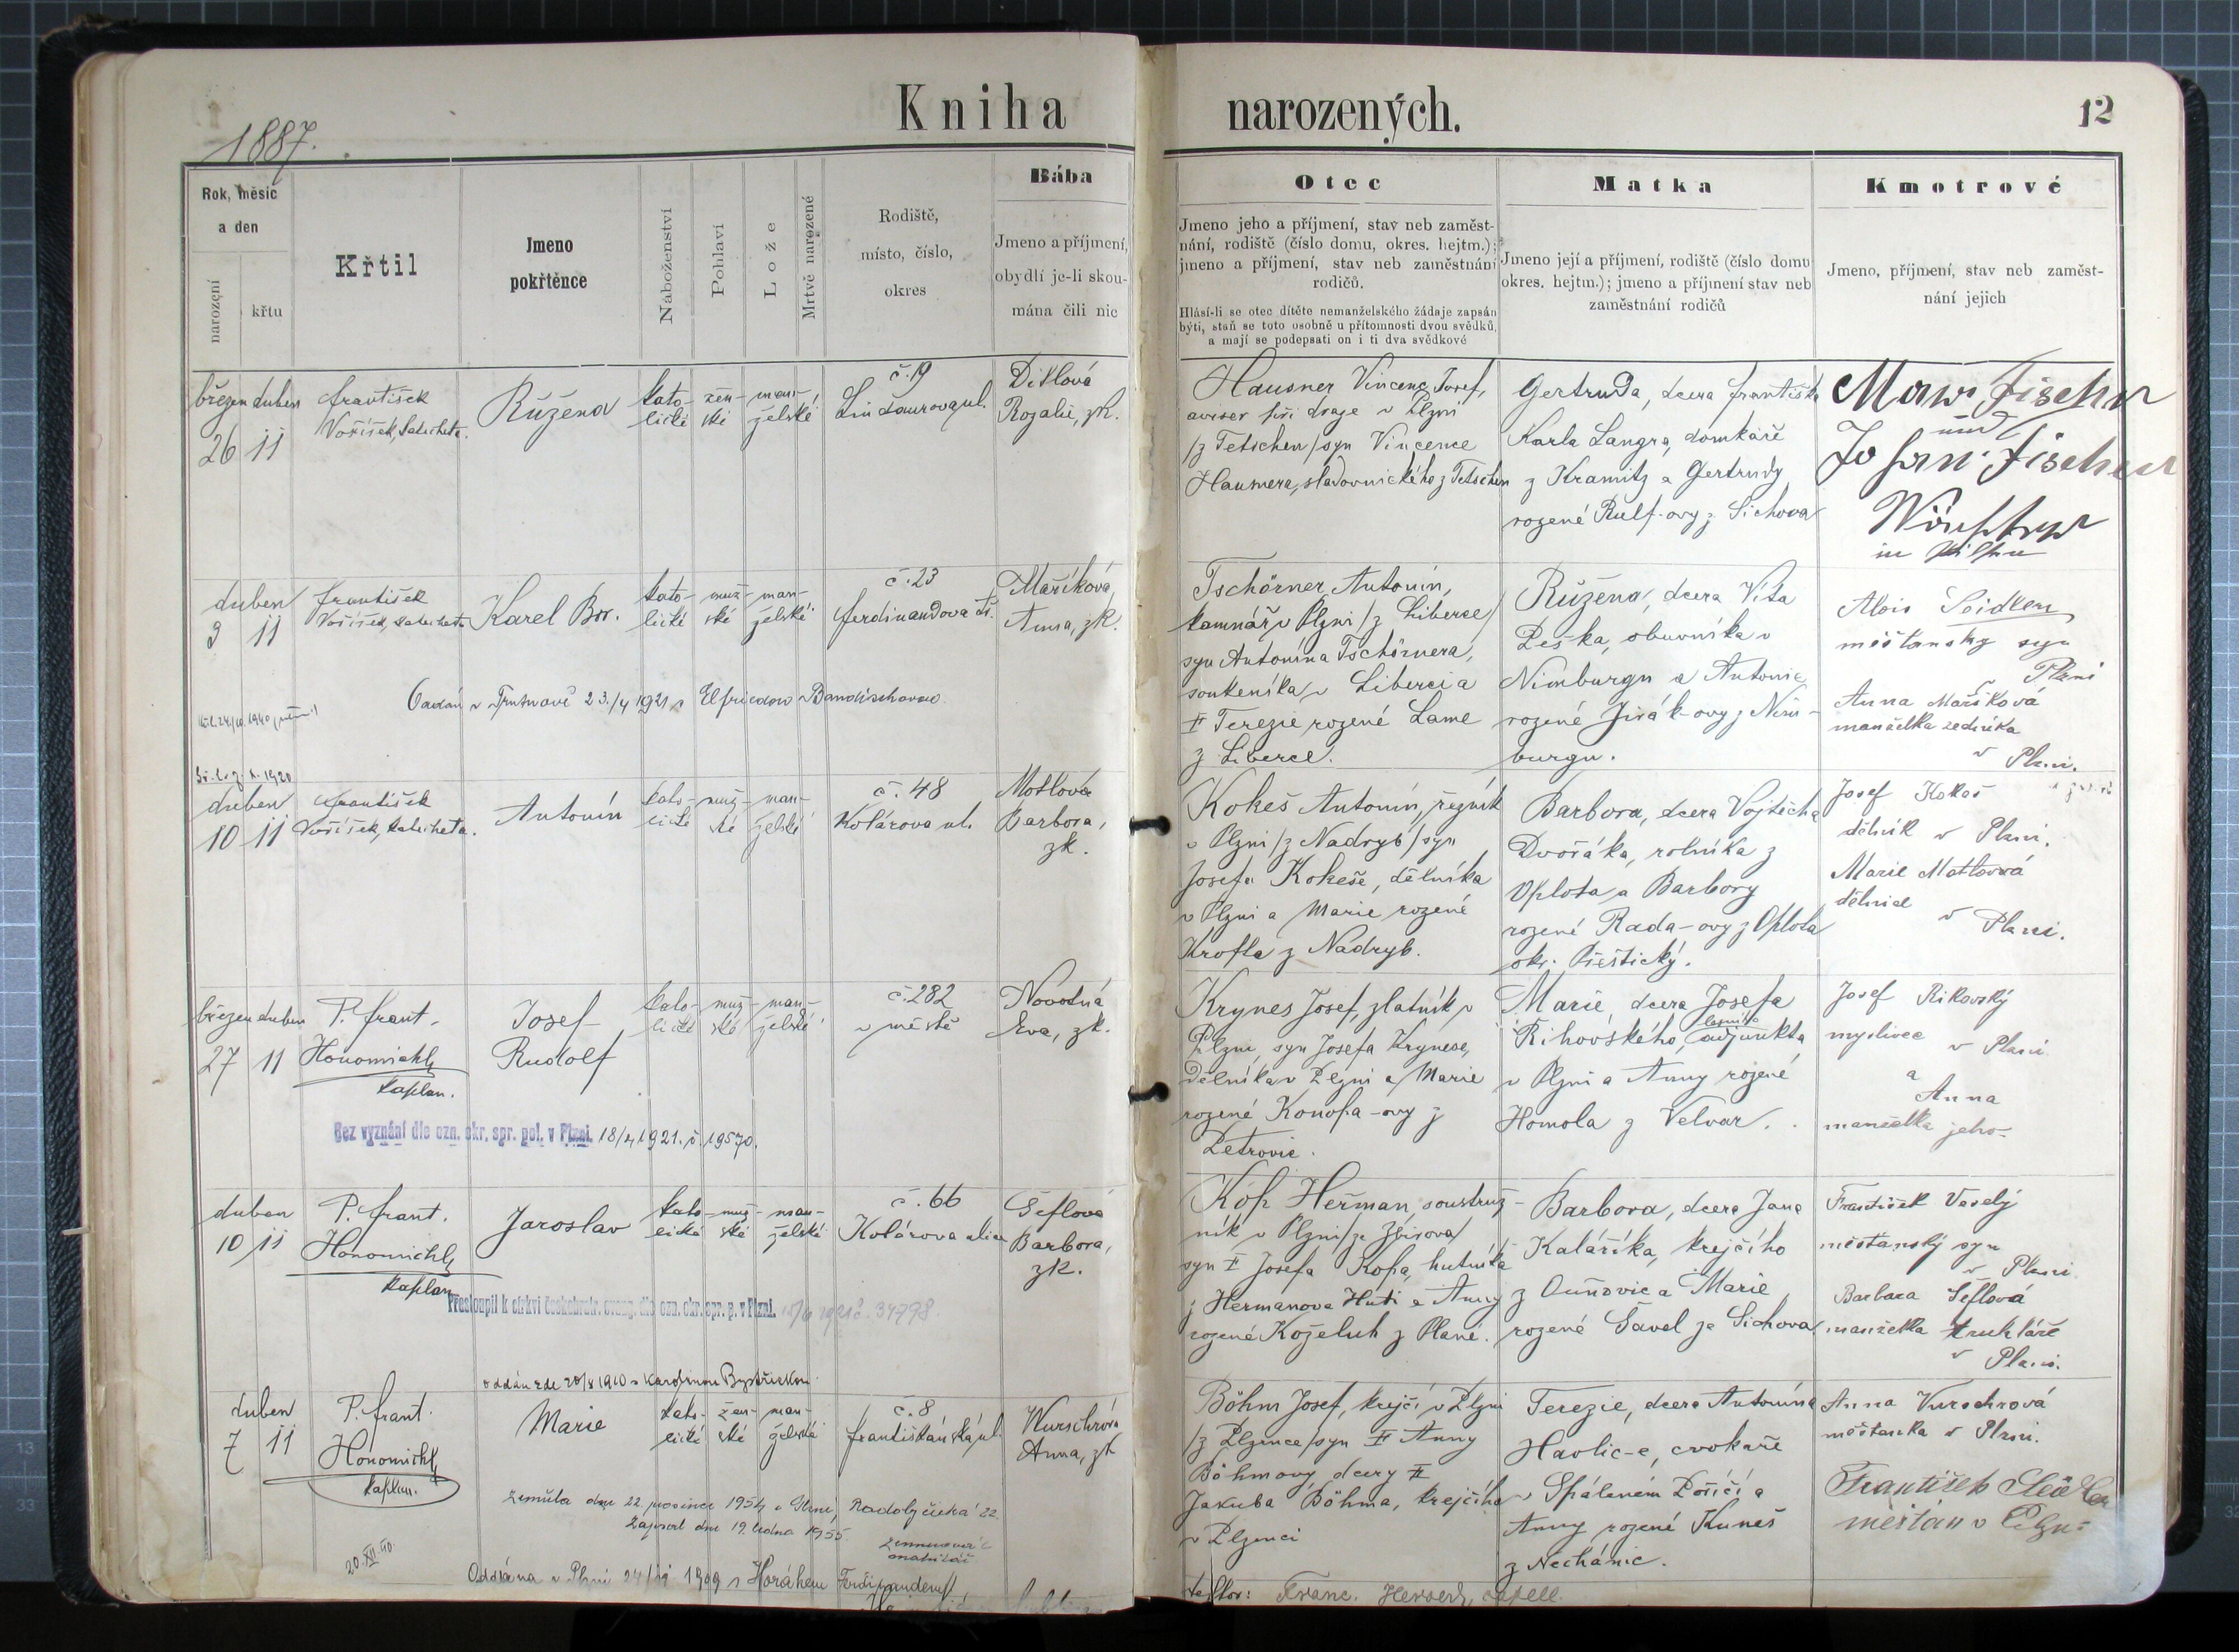 Kniha narozených.
12
1887.
Rok, měsíc a den
narození
křtu
Křtil
Jmeno pokřtěnce
Náboženství
Pohlaví
Lože
Mrtvě narozené
Rodiště, místo, číslo, okres
Bába
Jmeno a příjmení, obydlí je-li skoumána čili nic
Otec
Jmeno jeho a příjmení, stav neb zaměst-
nání, rodiště (číslo domu, okres. hejtm.);
jmeno a příjmení, stav neb zaměstnání
rodičů.
Hlásí-li se otec dítěte nemanželského žádaje zapsán
býti, staň se toto osobně u přítomnosti dvou svědků,
a mají se podepsati on i ti dva svědkové
Matka
Jmeno její a příjmení, rodiště (číslo domu
okres. hejtm.); jmeno a příjmení stav neb
zaměstnání rodičů
Kmotrové
Jmeno, příjmení, stav neb zaměst-
nání jejich
březen duben
26 11
František
Voříšek, katecheta.
Růžena
kato-
lické
žen-
ské
man-
želské
č. 19
Rozalie, zk.
Hausner Vincenc Josef,
v Plzni
/z Tetschen/ syn Vincence
Hausnera, sladovnického z Tetschen
Gertruda, dcera Františka
Karla Langra, domkáře
z Kramitz a Gertrudy
rozené Rulf-ovy z Lichova
Fischer
und
Fischer
in Pilsen
duben
3 11
František
Voříšek, katecheta
Karel Bor.
kato-
lické
muž-
ské
man-
želské
č. 23
Ferdinandova tř.
Maříková,
Anna, zk.
Oddán v Trutnově 23./4 1921 s Elfriedou
Tschörner, Antonín,
kamnář v Plzni /z Liberce/
syn Antonína Tschörnera,
soukeníka v Liberci a
Terezie rozené Lame
z Liberce.
Růžena, dcera Víta
Peška, obuvníka v
Nimburgu a Antonie
rozené Jirák-ovy z Nim-
burgu.
Alois
měšťanský syn
v Plzni
Anna Maříková
manželka zedníka
v Plzni.
duben
10 11
František
Voříšek, katecheta.
Antonín
kato-
lické
muž-
ské
man-
želské
č. 48
Kolárova ul.
Motlová
Barbora,
zk.
Kokeš Antonín, řezník
v Plzni /z Nadryb/ syn
Josefa Kokeše, dělníka
v Plzni a Marie rozené
Krofta z Nadryb.
Barbora, dcera Vojtěcha
Dvořáka, rolníka z
Oplota a Barbory
rozené Rada-ovy z Oplota
okr. Přeštický.
Josef Kokeš
dělník v Plzni.
Marie Motlová
dělnice
v Plzni.
březen duben
27 11
P. Frant.
Honomichl,
kaplan.
Josef
Rudolf
kato-
lické
muž-
ské
man-
želské
č. 282
v městě
Novotná
Eva, zk.
Bez vyznání dle ozn. okr. spr. pol. v Plzni. 18/4 1921. č. 19570.
Krynes Josef, zlatník v
Plzni, syn Josefa Krynese,
dělníka v Plzni a Marie
rozené Konopa-ovy z
Petrovic.
Marie, dcera Josefa
Rihovského, lesního adjunkta
v Plzni a Anny rozené
Homola z Velvar.
Josef Rikovský
myslivec
v Plzni
a
Anna
manželka jeho
duben
10 11
P. Frant.
Honomichl,
kaplan
Jaroslav
kato-
lické
muž-
ské
man-
želské
č. 66
Kolárova ulice
Šeflová
Barbora,
zk.
Přestoupil k církvi českobratr. evang. dle ozn. okr. spr. p. v Plzni. 1921 č. 34798.
Kop Heřman, soustruž-
ník v Plzni /ze Zbirova/
syn Josefa Kopa, hutníka
z Hermanova Huti a Anny
rozené Koželuh z Plané.
Barbora, dcera Jana
Kalaříka, krejčího
z Ouňovic a Marie
rozené Gavel ze Lichova
František Veselý
měšťanský syn
v Plzni
Barbara Šeflová
manželka truhláře
v Plzni.
duben
7 11
P. Frant.
Honomichl,
kaplan.
Marie
kato-
lické
žen-
ské
man-
želské
č. 8
Františkánská ul.
Wurschrová
Anna, zk
Zemřela dne 22. prosince 1954 v Plzni, Radobyčická 22.
Zapsal dne 19. ledna 1955.
20. XII. 40.
Oddána v Plzni 1909 s Horákem Ferdinandem,
Böhm Josef, krejčí v Plzni
/z Plzence/ syn Anny
Böhmovy dcery
Jakuba Böhma, krejčího
v Plzenci
Terezie, dcera Antonína
Havlic-e, cvokaře
v Spáleném Poříčí a
Anny rozené Kuneš
z Nechánic.
Anna Vurschrová
měšťanka v Plzni.
František
měšťan v
Franc.